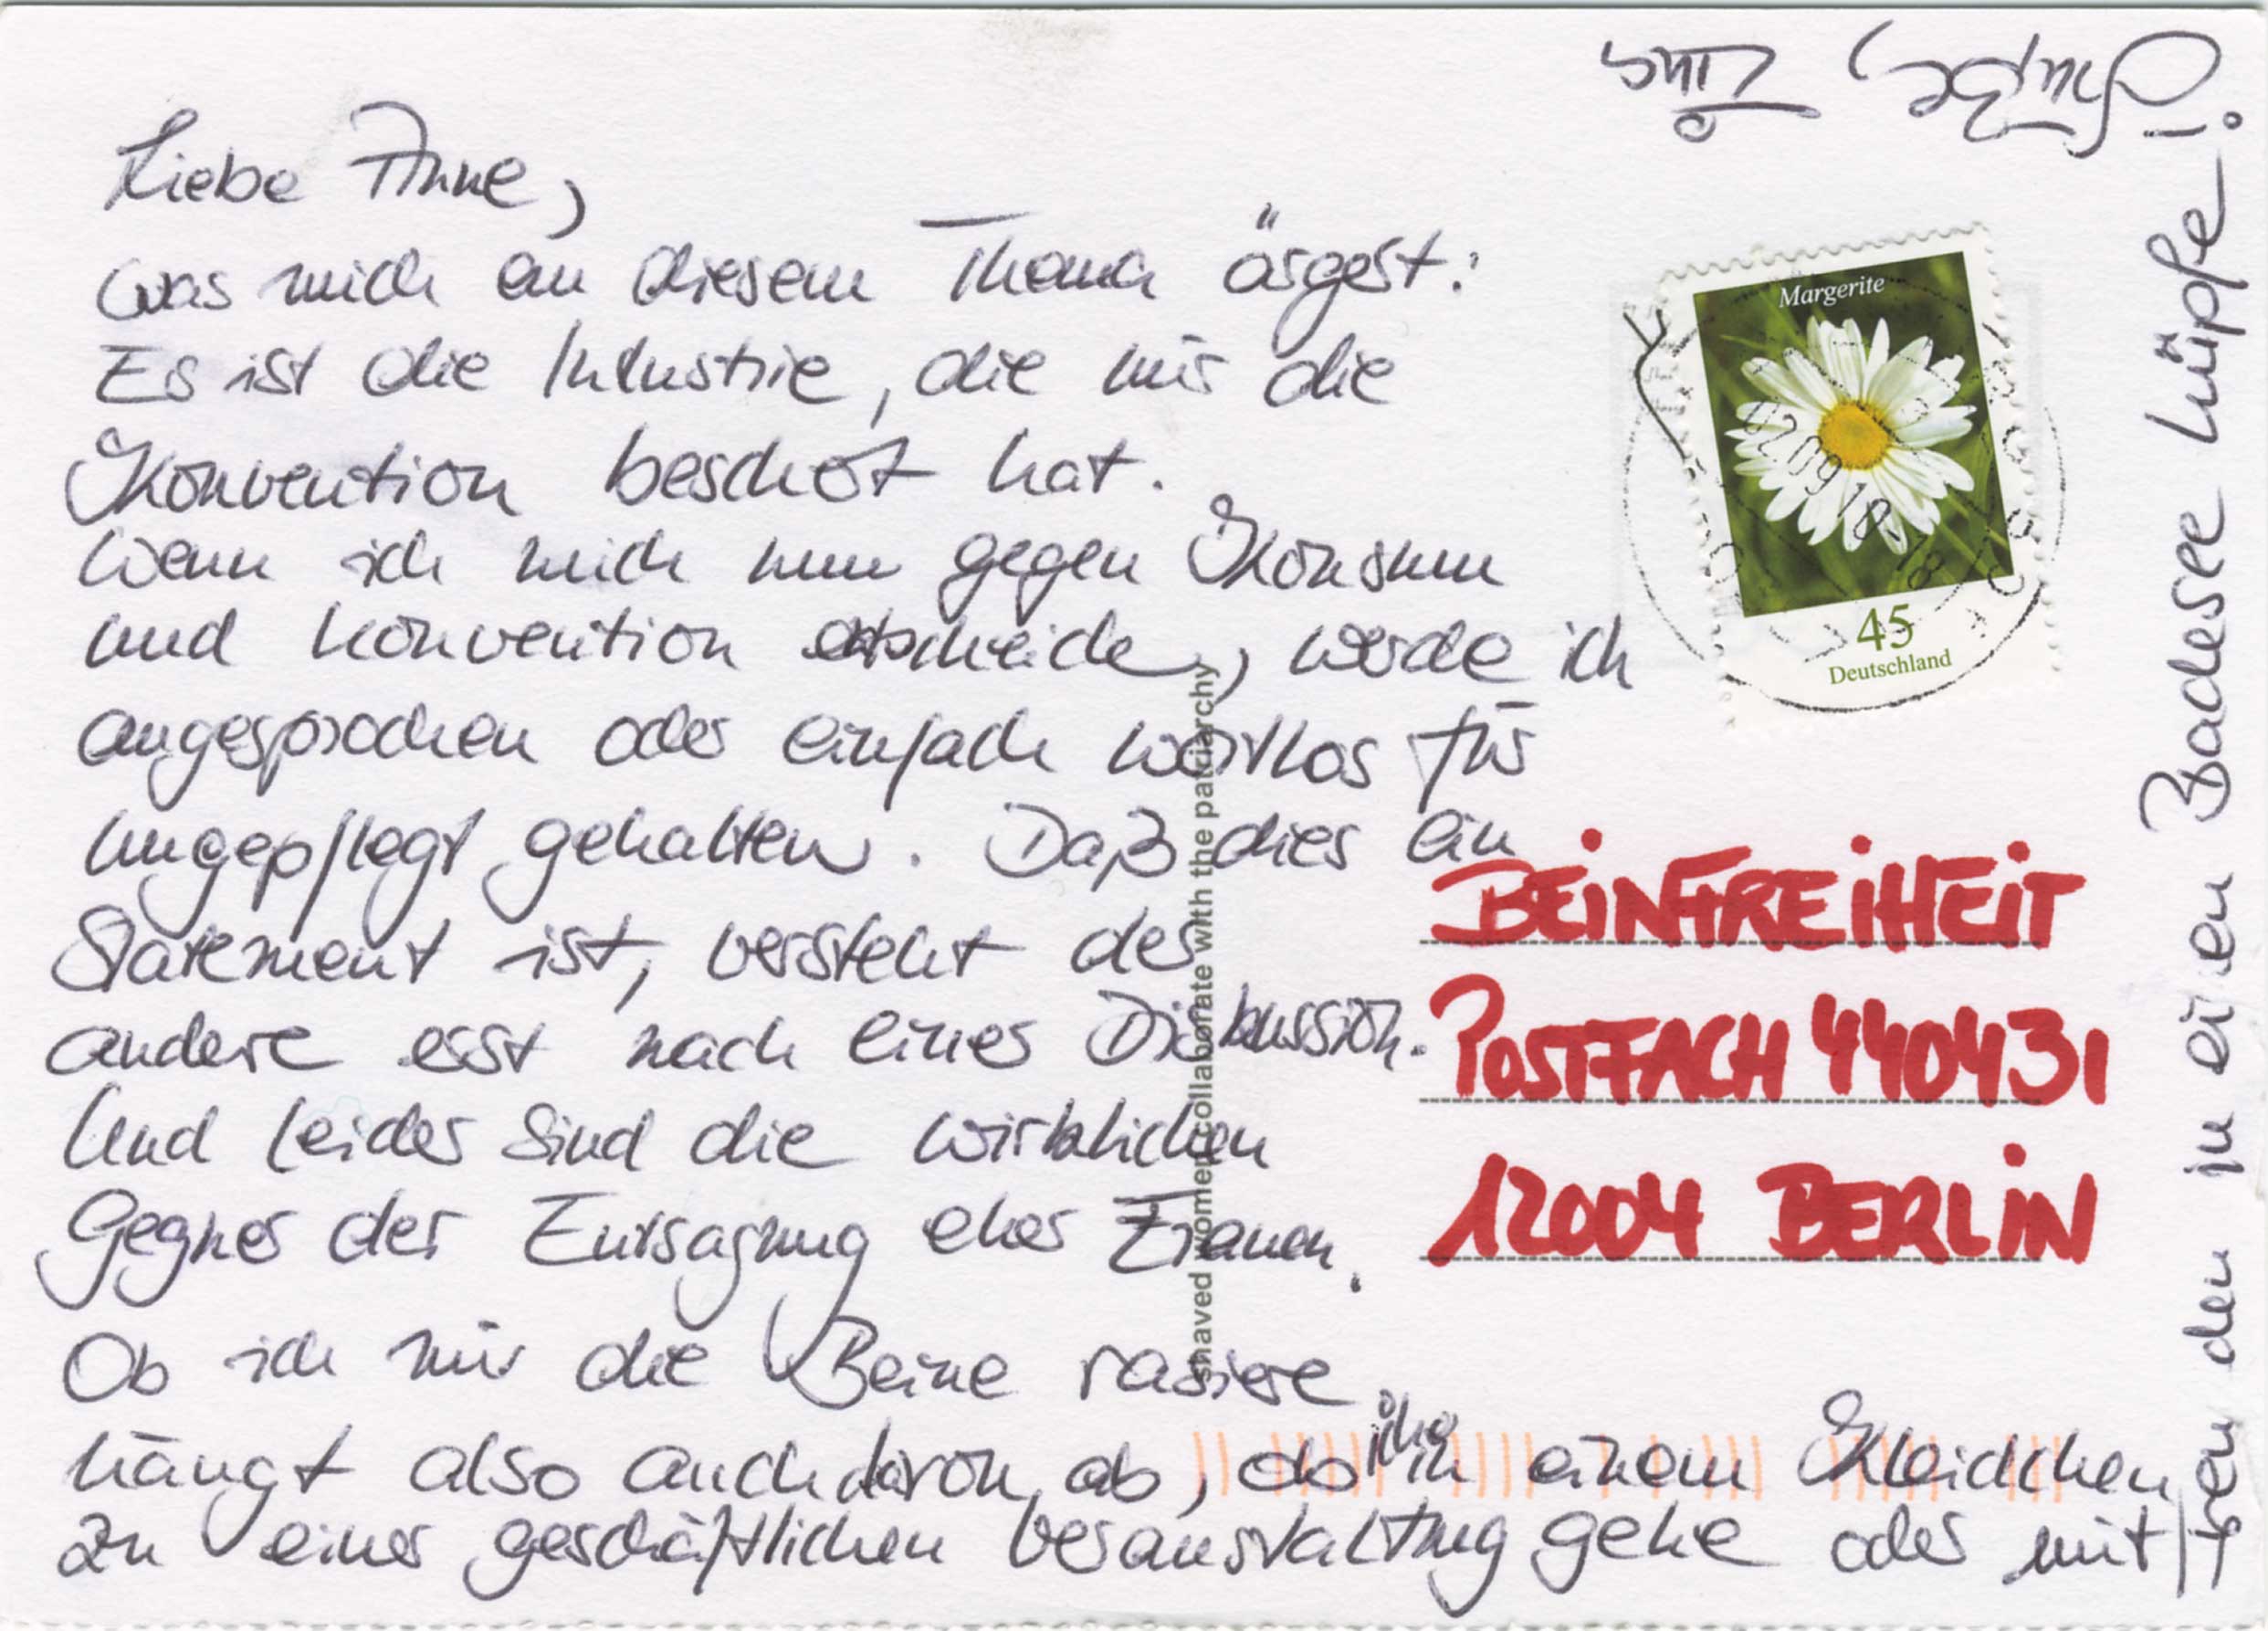 Liebe Anne,
was mich an diesem Thema ärgert:
Es ist die Industrie, die mir die
Konvention beschert hat.
Wenn ich mich nun gegen Konsum
und Konvention entscheide, werde ich
angesprochen oder einfach wortlos für
ungepflegt gehalten. Daß dies ein
Statement ist, versteht der
andere erst nach einer Diskussion.
Und leider sind die wirklichen
Gegner der Entsagung eher Frauen.
Ob ich mir die Beine rasiere
hängt also auch davon ab, ob ich in einem Kleidchen
zu einer geschäftlichen Veranstaltung gehe oder mit
den in einen Badesee hüpfe!
Margerite
02.09.10-18
45
Deutschland
shaved women collaborate with the patriarchy
BEINFREIHEIT
POSTFACH 440431
12004 BERLIN